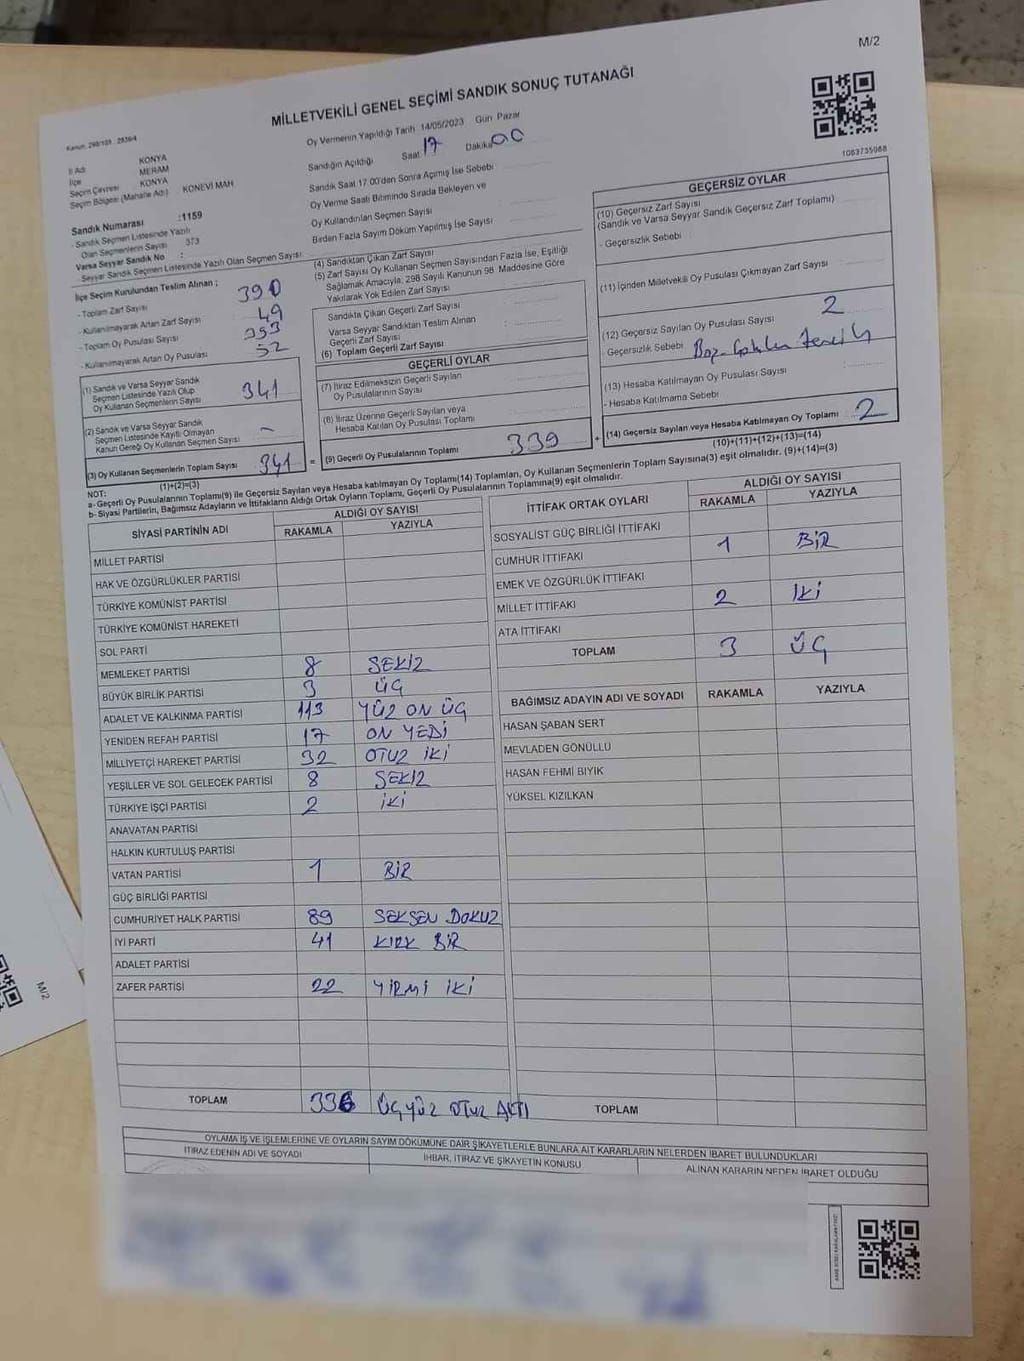 M/2
MİLLETVEKİLİ GENEL SEÇİMİ SANDIK SONUÇ TUTANAĞI
1083735068
İl Adı KONYA
İlçe MERAM
Seçim Çevresi KONYA
Seçim Bölgesi (Mahalle Adı) KONEVİ MAH.
Sandık Numarası :1159
- Sandık Seçmen Listesinde Yazılı
Olan Seçmenlerin Sayısı 373
Varsa Seyyar Sandık No :
- Seyyar Sandık Seçmen Listesinde Yazılı Olan Seçmen Sayısı
Oy Vermenin Yapıldığı Tarih 14/05/2023 Gün Pazar
Sandığın Açıldığı Saat 17 Dakika 00
Sandık Saat 17:00'den Sonra Açımış İse Sebebi
Oy Verme Saati Bitiminde Sırada Bekleyen ve
Oy Kullandırılan Seçmen Sayısı
Birden Fazla Sayım Döküm Yapılmış İse Sayısı
İlçe Seçim Kurulundan Teslim Alınan ;
- Toplam Zarf Sayısı 390
- Kullanılmayarak Artan Zarf Sayısı 49
- Toplam Oy Pusulası Sayısı 393
- Kullanılmayarak Artan Oy Pusulası 52
(1) Sandık ve Varsa Seyyar Sandık
Seçmen Listesinde Yazılı Olup
Oy Kullanan Seçmenlerin Sayısı 341
(2) Sandık ve Varsa Seyyar Sandık
Seçmen Listesinde Kayıtlı Olmayan
Kanun Gereği Oy Kullanan Seçmen Sayısı -
(3) Oy Kullanan Seçmenlerin Toplam Sayısı 341
(1)+(2)=(3)
(4) Sandıktan Çıkan Zarf Sayısı
(5) Zarf Sayısı Oy Kullanan Seçmen Sayısından Fazla İse, Eşitliği
Sağlamak Amacıyla; 298 Sayılı Kanunun 98. Maddesine Göre
Yakılarak Yok Edilen Zarf Sayısı
Sandıkta Çıkan Geçerli Zarf Sayısı
Varsa Seyyar Sandıktan Teslim Alınan
Geçerli Zarf Sayısı
(6) Toplam Geçerli Zarf Sayısı
GEÇERLİ OYLAR
(7) İtiraz Edilmeksizin Geçerli Sayılan
Oy Pusulalarının Sayısı
(8) İtiraz Üzerine Geçerli Sayılan veya
Hesaba Katılan Oy Pusulası Toplamı
= (9) Geçerli Oy Pusulalarının Toplamı 339
GEÇERSİZ OYLAR
(10) Geçersiz Zarf Sayısı
(Sandık ve Varsa Seyyar Sandık Geçersiz Zarf Toplamı)
- Geçersizlik Sebebi :
(11) İçinden Milletvekili Oy Pusulası Çıkmayan Zarf Sayısı
(12) Geçersiz Sayılan Oy Pusulası Sayısı 2
- Geçersizlik Sebebi
(13) Hesaba Katılmayan Oy Pusulası Sayısı :
- Hesaba Katılmama Sebebi
+ (14) Geçersiz Sayılan veya Hesaba Katılmayan Oy Toplamı 2
(10)+(11)+(12)+(13)=(14)
NOT:
a- Geçerli Oy Pusulalarının Toplamı(9) ile Geçersiz Sayılan veya Hesaba katılmayan Oy Toplamı(14) Toplamları, Oy Kullanan Seçmenlerin Toplam Sayısına(3) eşit olmalıdır. (9)+(14)=(3)
b- Siyasi Partilerin, Bağımsız Adayların ve İttifakların Aldığı Ortak Oyların Toplamı, Geçerli Oy Pusulalarının Toplamına(9) eşit olmalıdır.
SİYASİ PARTİNİN ADI ALDIĞI OY SAYISI
RAKAMLA YAZIYLA
MİLLET PARTİSİ
HAK VE ÖZGÜRLÜKLER PARTİSİ
TÜRKİYE KOMÜNİST PARTİSİ
TÜRKİYE KOMÜNİST HAREKETİ
SOL PARTİ
MEMLEKET PARTİSİ 8 SEKİZ
BÜYÜK BİRLİK PARTİSİ 3 ÜÇ
ADALET VE KALKINMA PARTİSİ 113 YÜZ ON ÜÇ
YENİDEN REFAH PARTİSİ 17 ON YEDİ
MİLLİYETÇİ HAREKET PARTİSİ 32 OTUZ İKİ
YEŞİLLER VE SOL GELECEK PARTİSİ 8 SEKİZ
TÜRKİYE İŞÇİ PARTİSİ 2 İKİ
ANAVATAN PARTİSİ
HALKIN KURTULUŞ PARTİSİ
VATAN PARTİSİ 1 BİR
GÜÇ BİRLİĞİ PARTİSİ
CUMHURİYET HALK PARTİSİ 89 SEKSEN DOKUZ
İYİ PARTİ 41 KIRK BİR
ADALET PARTİSİ
ZAFER PARTİSİ 22 YİRMİ İKİ
TOPLAM 336 ÜÇYÜZ OTUZ ALTI
İTTİFAK ORTAK OYLARI ALDIĞI OY SAYISI
RAKAMLA YAZIYLA
SOSYALİST GÜÇ BİRLİĞİ İTTİFAKI
CUMHUR İTTİFAKI 1 BİR
EMEK VE ÖZGÜRLÜK İTTİFAKI
MİLLET İTTİFAKI 2 İKİ
ATA İTTİFAKI
TOPLAM 3 ÜÇ
BAĞIMSIZ ADAYIN ADI VE SOYADI RAKAMLA YAZIYLA
HASAN ŞABAN SERT
MEVLADEN GÖNÜLLÜ
HASAN FEHMİ BIYIK
YÜKSEL KIZILKAN
TOPLAM
OYLAMA İŞ VE İŞLEMLERİNE VE OYLARIN SAYIM DÖKÜMÜNE DAİR ŞİKAYETLERLE BUNLARA AİT KARARLARIN NELERDEN İBARET BULUNDUKLARI
İTİRAZ EDENİN ADI VE SOYADI İHBAR, İTİRAZ VE ŞİKAYETİN KONUSU ALINAN KARARIN NEDEN İBARET OLDUĞU
M/2